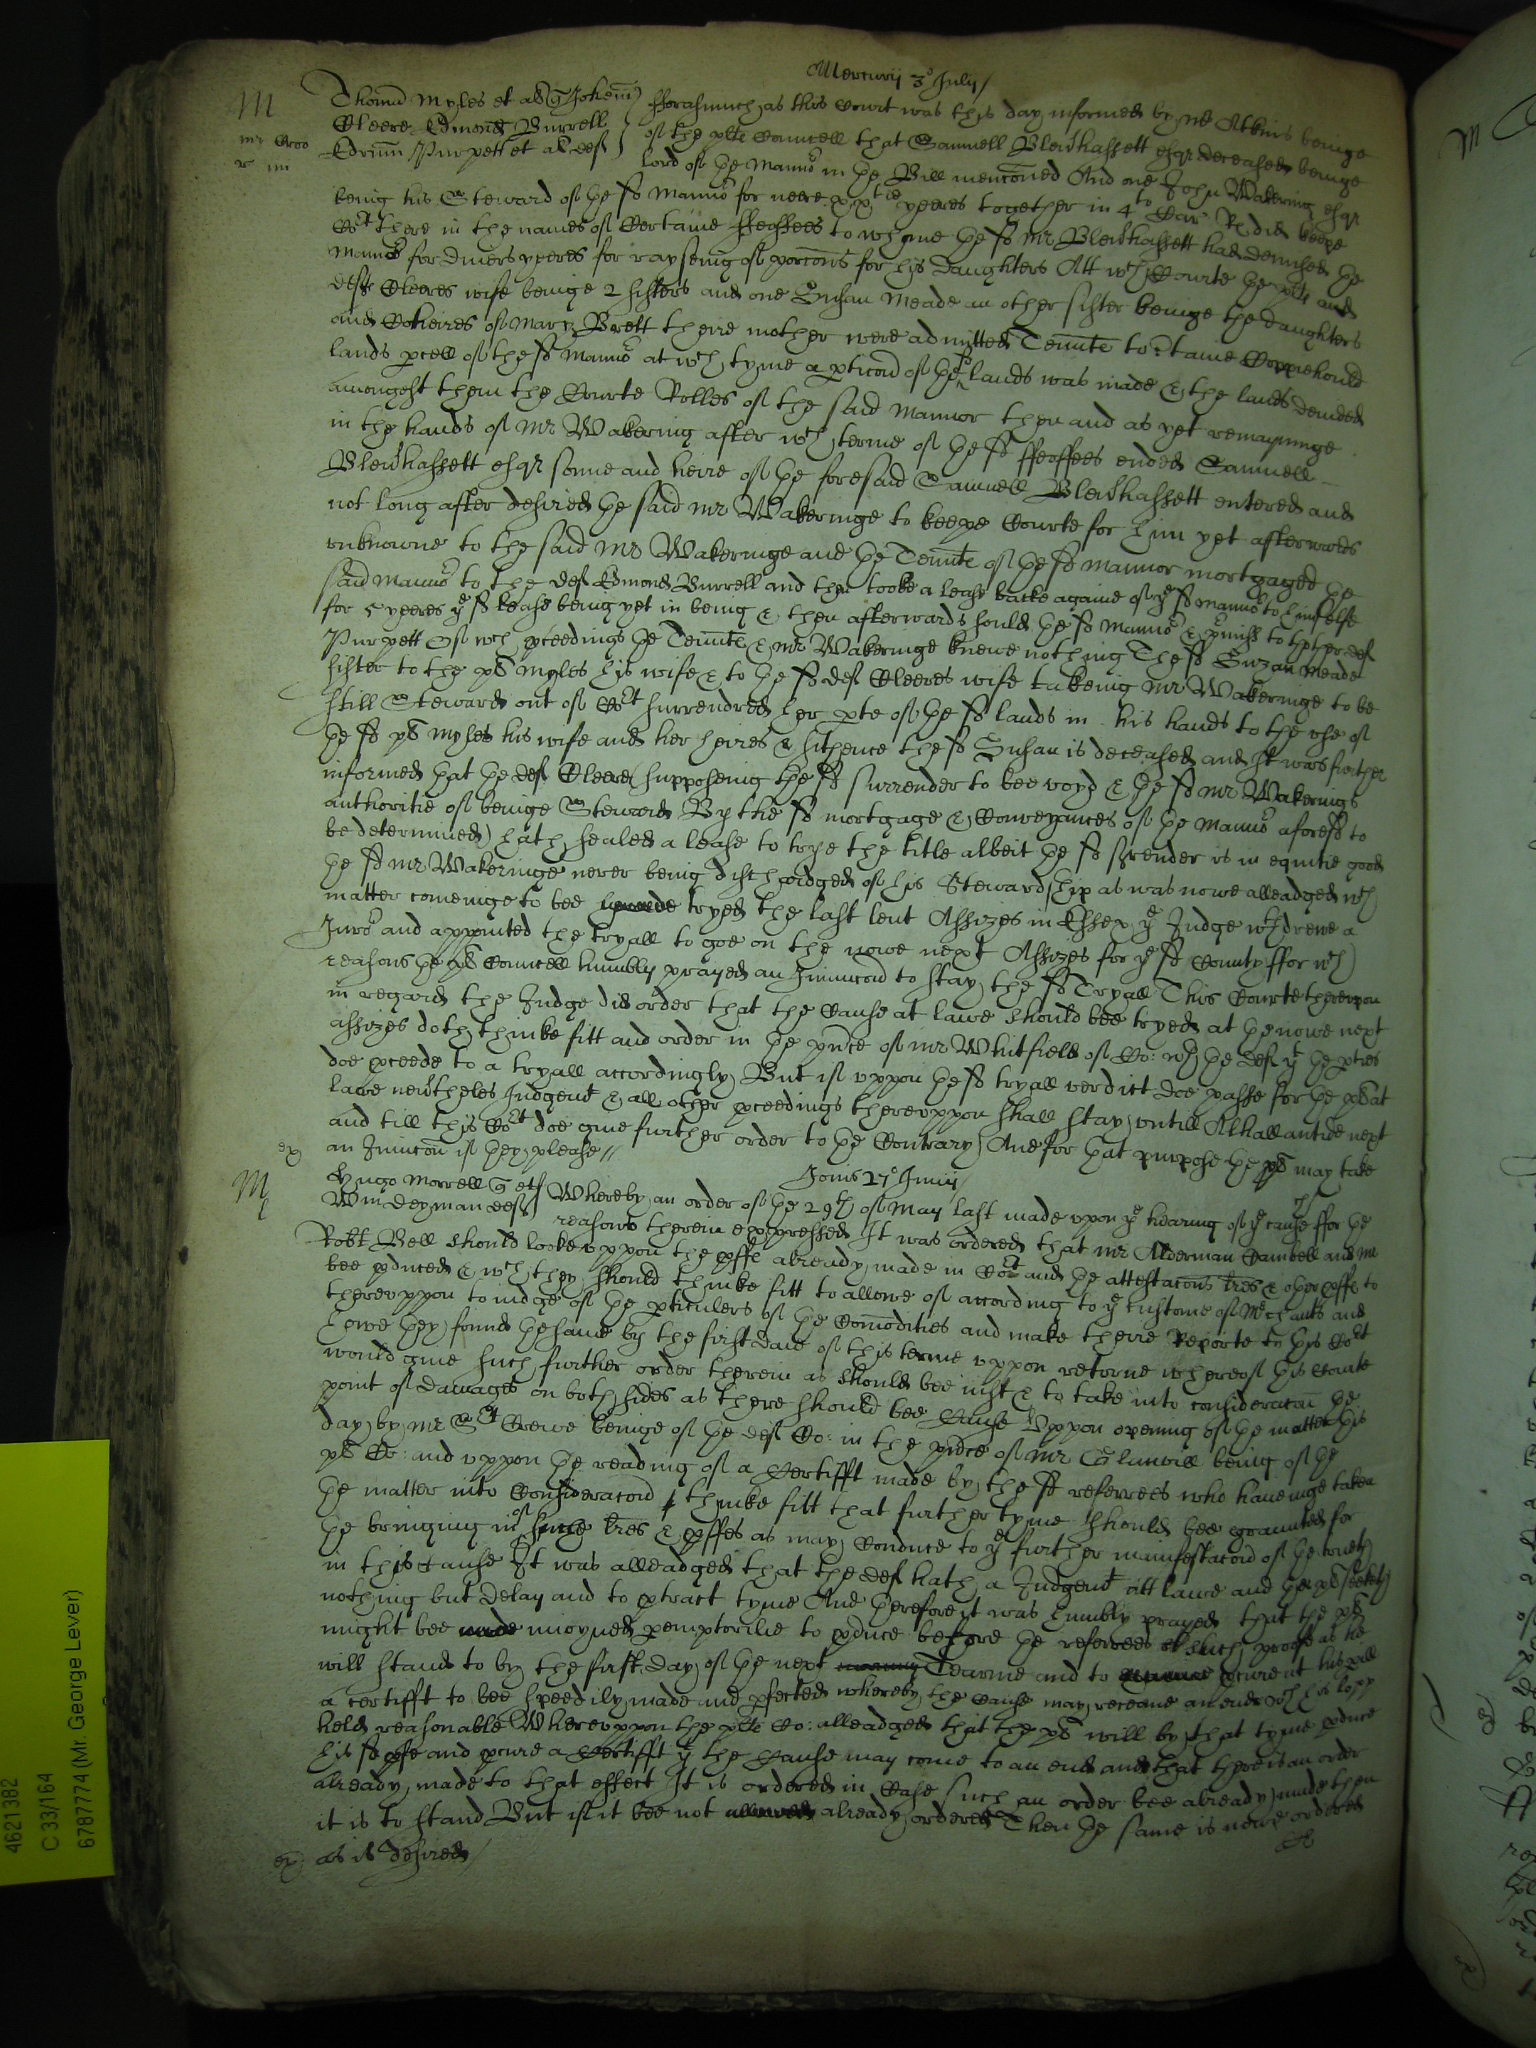 Mercurij 3° July
M
Thomas Myles et al q Johem
Cleere Edmond Burrell
Edrum Purpett et al def
fforasmuch as this Court was this day informed by mr Atkins beinge
of the plts Councell that Samuell Blenhassett esqr deceased beinge
lord of the Mannor in the Bill mencioned And one John Wakering esqr
being his Steward of the sd Mannor for neere xxtie yeeres together in 4to Car Rs did keepe
Cort there in the names of Certaine ffeoffees to whome the sd Mr Blenhassett had demised the
Mannor for divers yeeres for raysinge of porcons for his daughters Att wch Courte the plts and
defts Cleeres wife beinge 2 sisters and one Susan Meade an other sister beinge the daughters
and Coheires of Mary Brett theire mother were admitted Tennts to ctaine Coppiehould
lands pcell of the sd Mannor at wch tyme a pticon of the lands was made & the lands devided
amongest them the Courte Rolles of the said Mannor then and as yet remayninge
in the hands of Mr Wakering after wch terme of the sd ffeoffees ended Samuell
Blenhassett esqr sonne and heire of the foresaid Samuell Blenhassett entered and
not long after desired the said Mr Wakeringe to keepe Courte for him yet afterwards
unknowne to the said Mr Wakeringe and the Tennts of the sd mannor mortgaged the
said Mannor to the def Edmond Burrell and then tooke a lease backe againe of ye sd Mannor to himselfe
for 5 yeeres ye sd lease being yet in being & then afterwards sould the sd Mannor & pmiss to thother def
Purpett Of wch pceedings the Tennts & Mr Wakeringe knewe nothing The sd Suzan Meade
sister to the pl Myles his wife & to the sd def Cleeres wife takeing Mr Wakeringe to be
still Steward out of Cort surrendred her pte of the sd lands in his hands to the use of
the sd pl Myles his wife and her heires & sithence the sd Susan is deceased and It was further
informed that the def Cleere supposeing the sd surrender to bee voyd & the sd mr Wakerings
authoritie of beinge Steward By the sd mortgage & Conveyances of the Mannor aforesd to
be determined hath sealed a lease to trye the title albeit the sd srender is in equitie good
the sd mr Wakeringe never being dischardged of his Stewardship as was nowe alleadged wch
matter cominge to bee tryed the last lent Assizes in Essex ye Judge wthdrewe a
Juror and appointed the tryall to goe on the nowe next Assizes for ye sd County ffor wch
reasons the pl Councell humbly prayed an Iniuncon to stay the sd Tryall This Courte thereupon
in regard the Judge did order that the Cause at lawe should bee tryed at the nowe next
assizes doth thinke fitt and order in the pnce of mr Whitfield of Co: wth the def yt the pties
doe pceede to a tryall accordingly But if uppon the sd tryall verdict doe passe for the pl at
lawe neutheles Judgemt & all other pceedings thereuppon shall stay untill Alhallantide next
and till this Cort doe give further order to the Contrary And for that purpose the pl may take
ex an Iniuncon if they please //
Jovis 27° Junij
M
Hugo Morrell q
Wm Deyman def
Whereby an order of the 29th of May last made upon ye hearing of ye cause ffor the
reasons therein expressed It was ordered that mr Alderman Cambell and Mr
Robt Bell should looke uppon the pffs already made in Cort and the attestacons tres & other pffs to
bee pduced & wch they should thinke fitt to allowe of according to ye custome of Mchants and
thereuppon to iudge of the pticulers of the Comodities and make theire Reporte to this Cort
howe they found the same by the first daie of this terme uppon retorne whereof this Courte
would give such further order therein as should bee iust & to take into consideracon the
point of damages on both sides as there should bee Cause Uppon opening of the matter this
day by mr St Crewe beinge of the def Co: in the pnce of Mr being of the
pl Co: and uppon the reading of a Certifft made by the sd referrees who haveinge taken
the matter into Consideracon thinke fitt that further tyme should bee graunted for
the bringing in of such tres & pffes as may Conduce to ye further manifestacon of the truth
in this cause It was alleadged that the def hath a Judgemt att lawe and the pl seeketh
nothing but delay and to ptract tyme And therefore it was humbly prayed that the pl
might bee inioyned pemptorilie to pduce before the referrees such proofe as he
will stand to by the first day of the next Tearme and to pcure
a certifft to bee speedily made and pfected whereby the cause may receave an end wch this
held reasonable Whereuppon the plts Co: alleadged that the pl will by that tyme pduce
his sd pfe and pcure a Certifft yt the Cause may come to an end and that there is an order
already made to that effect It is ordered in Case such an order bee already made then
it is to stand But if it bee not already ordered Then the same is nowe ordered
ex as is desired
4621382
C 33/164
6787774 (Mr. George Lever)